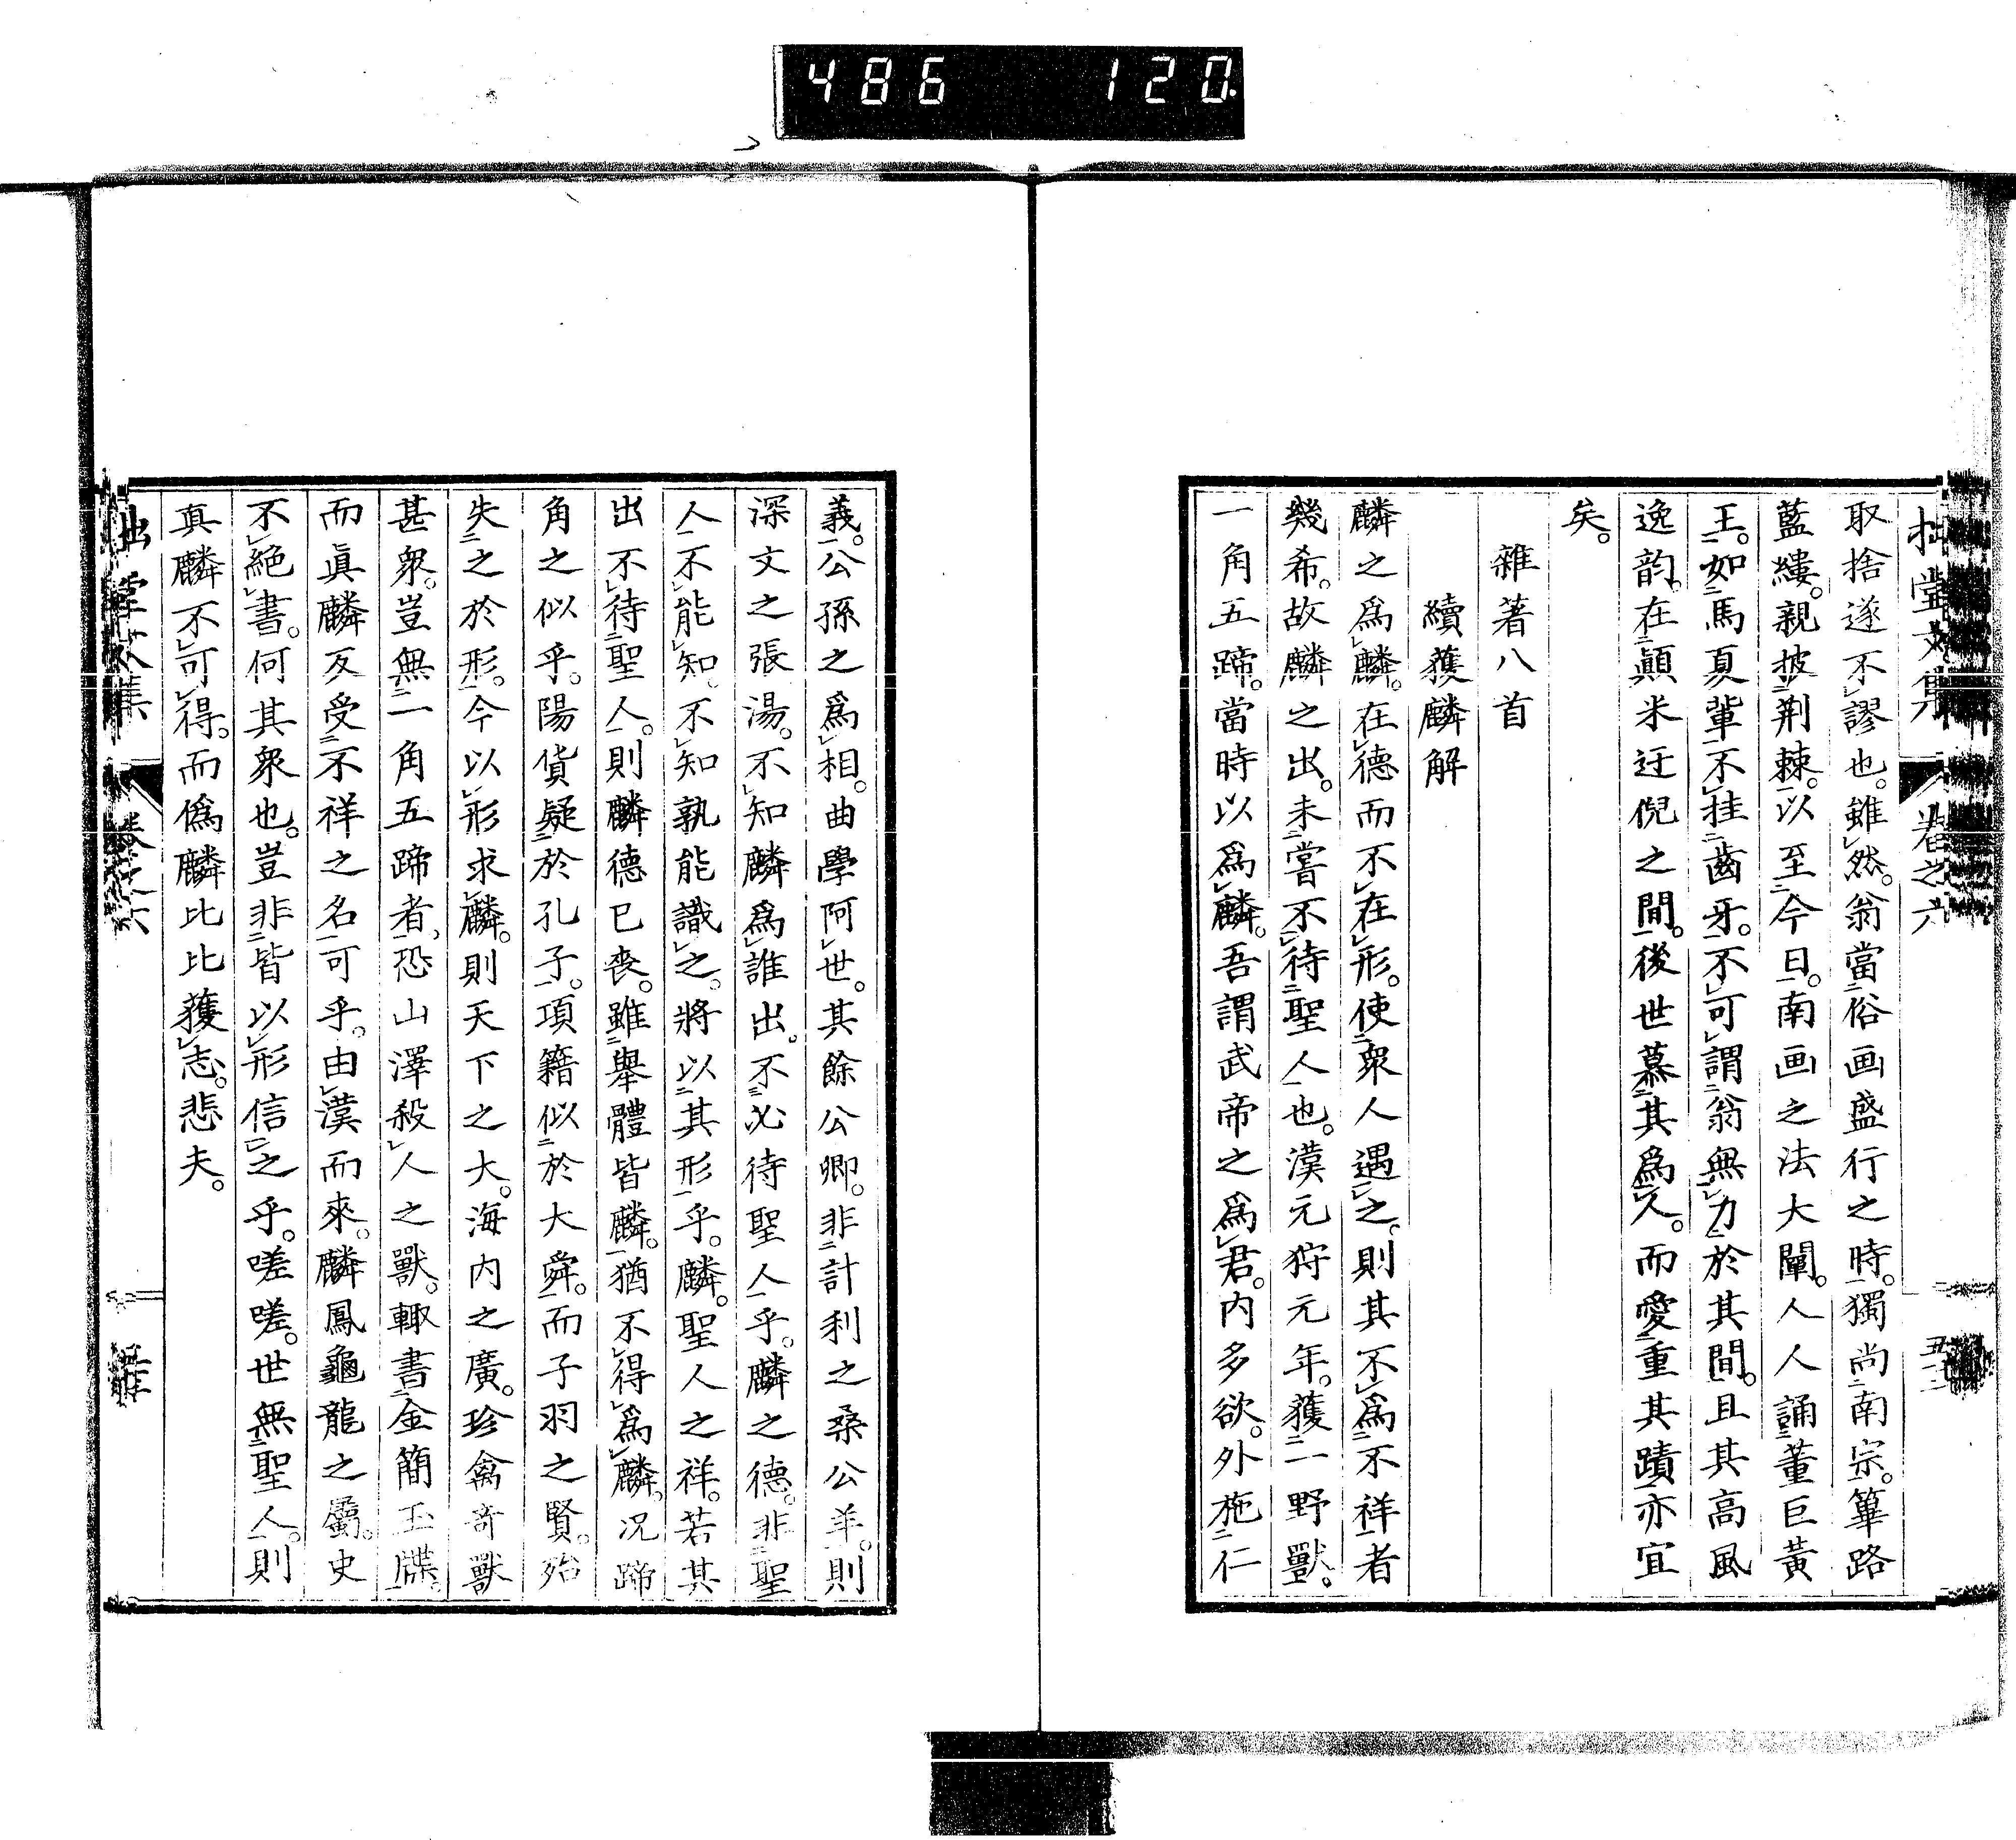 486 120
拙堂文集 卷之六 五十二
取捨遂不謬也。雖然。翁當俗画盛行之時。獨尚南宗。篳路
藍縷。親披荆棘。以至今日。南画之法大闡。人人誦董巨黃
王。如馬夏輩不挂齒牙。不可謂翁無力於其間。且其高風
逸韵。在顚米迂倪之間。後世慕其爲人。而愛重其蹟亦宜
矣。
雜著八首
續獲麟解
麟之爲麟。在德而不在形。使衆人遇之。則其不爲不祥者
幾希。故麟之出。未嘗不待聖人也。漢元狩元年。獲一野獸。
一角五蹄。當時以爲麟。吾謂武帝之爲君。内多欲。外施仁
義。公孫之爲相。曲學阿世。其餘公卿。非計利之桑公羊。則
深文之張湯。不知麟爲誰出。不必待聖人乎。麟之德。非聖
人不能知。不知孰能識之。將以其形乎。麟。聖人之祥。若其
出不待聖人。則麟德已喪。雖擧體皆麟。猶不得爲麟。况蹄
角之似乎。陽貨疑於孔子。項籍似於大舜。而子羽之賢。殆
失之於形。今以形求麟。則天下之大。海内之廣。珍禽奇獸
甚衆。豈無一角五蹄者、恐山澤殺人之獸。輙書金簡玉牒。
而眞麟反受不祥之名可乎。由漢而來。麟鳳龜龍之屬。史
不絕書。何其衆也。豈非皆以形信之乎。嗟嗟。世無聖人。則
真麟不可得。而僞麟比比獲志。悲夫。